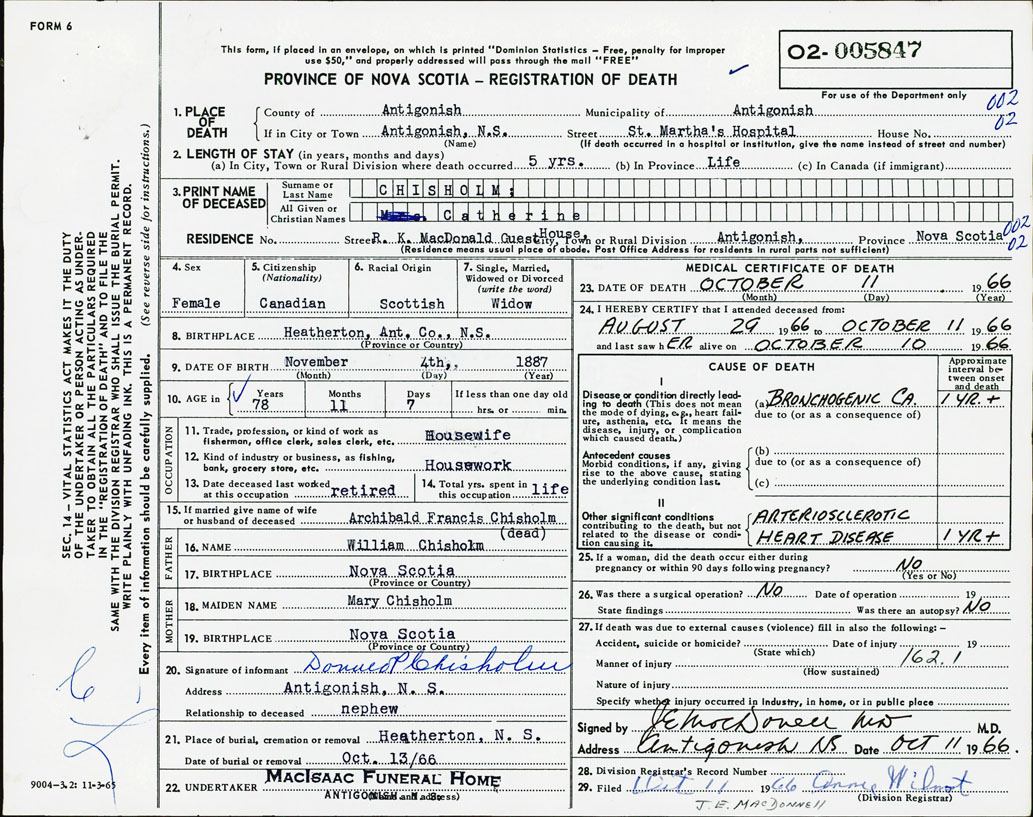 FORM 6
This form, if placed in an envelope, on which is printed "Dominion Statistics – Free, penalty for improper
use $50," and properly addressed will pass through the mail "FREE"
PROVINCE OF NOVA SCOTIA – REGISTRATION OF DEATH
02-005847
For use of the Department only
002
02
1. PLACE OF DEATH
County of Antigonish Municipality of Antigonish
If in City or Town Antigonish, N.S. Street St. Martha's Hospital House No.
(Name) (If death occurred in a hospital or institution, give the name instead of street and number)
2. LENGTH OF STAY (in years, months and days)
(a) In City, Town or Rural Division where death occurred 5 yrs. (b) In Province Life (c) In Canada (if immigrant)
3. PRINT NAME OF DECEASED
Surname or Last Name CHISHOLM;
All Given or Christian Names Catherine
002
02
RESIDENCE No. Street R. K. MacDonald Guest House, City, Town or Rural Division Antigonish, Province Nova Scotia
(Residence means usual place of abode. Post Office Address for residents in rural parts not sufficient)
4. Sex
Female
5. Citizenship
(Nationality)
Canadian
6. Racial Origin
Scottish
7. Single, Married,
Widowed or Divorced
(write the word)
Widow
8. BIRTHPLACE Heatherton, Ant. Co., N.S.
(Province or Country)
9. DATE OF BIRTH November 4th,, 1887
(Month) (Day) (Year)
10. AGE in
Years 78
Months 11
Days 7
If less than one day old
hrs. or min.
OCCUPATION
11. Trade, profession, or kind of work as
fisherman, office clerk, sales clerk, etc. Housewife
12. Kind of industry or business, as fishing,
bank, grocery store, etc. Housework
13. Date deceased last worked
at this occupation retired
14. Total yrs. spent in
this occupation life
15. If married give name of wife
or husband of deceased Archibald Francis Chisholm
(dead)
FATHER
16. NAME William Chisholm
17. BIRTHPLACE Nova Scotia
(Province or Country)
MOTHER
18. MAIDEN NAME Mary Chisholm
19. BIRTHPLACE Nova Scotia
(Province or Country)
20. Signature of informant Donald P Chisholm
Address Antigonish, N. S.
Relationship to deceased nephew
21. Place of burial, cremation or removal Heatherton, N. S.
Date of burial or removal Oct. 13/66
22. UNDERTAKER MACISAAC FUNERAL HOME
ANTIGONISH N. S.
(Name and address)
MEDICAL CERTIFICATE OF DEATH
23. DATE OF DEATH OCTOBER 11 1966
(Month) (Day) (Year)
24. I HEREBY CERTIFY that I attended deceased from:
AUGUST 29 1966 to OCTOBER 11 1966
and last saw hER alive on OCTOBER 10 1966.
CAUSE OF DEATH
Approximate
interval be-
tween onset
and death
I
Disease or condition directly lead-
ing to death (This does not mean
the mode of dying, e.g., heart fail-
ure, asthenia, etc. It means the
disease, injury, or complication
which caused death.)
(a) BRONCHOGENIC CA. 1 YR. +
due to (or as a consequence of)
Antecedent causes
Morbid conditions, if any, giving
rise to the above cause, stating
the underlying condition last.
(b)
due to (or as a consequence of)
(c)
II
Other significant conditions
contributing to the death, but not
related to the disease or condi-
tion causing it.
ARTERIOSCLEROTIC
HEART DISEASE 1 YR+
25. If a woman, did the death occur either during
pregnancy or within 90 days following pregnancy? NO
(Yes or No)
26. Was there a surgical operation? NO Date of operation 19
State findings Was there an autopsy? NO
27. If death was due to external causes (violence) fill in also the following:–
Accident, suicide or homicide? Date of injury 19
(State which)
162.1
Manner of injury
(How sustained)
Nature of injury
Specify whether injury occurred in Industry, in home, or in public place
Signed by J E MacDonell MD M.D.
Address Antigonish NS Date OCT 11 1966.
28. Division Registrar's Record Number
29. Filed Oct 11 1966 Annie Wilmot
(Division Registrar)
J. E. MACDONNELL
SEC. 14 – VITAL STATISTICS ACT MAKES IT THE DUTY
OF THE UNDERTAKER OR PERSON ACTING AS UNDER-
TAKER TO OBTAIN ALL THE PARTICULARS REQUIRED
IN THE "REGISTRATION OF DEATH" AND TO FILE THE
SAME WITH THE DIVISION REGISTRAR WHO SHALL ISSUE THE BURIAL PERMIT.
WRITE PLAINLY WITH UNFADING INK. THIS IS A PERMANENT RECORD.
Every item of information should be carefully supplied. (See reverse side for instructions.)
9004-3.2: 11-3-65